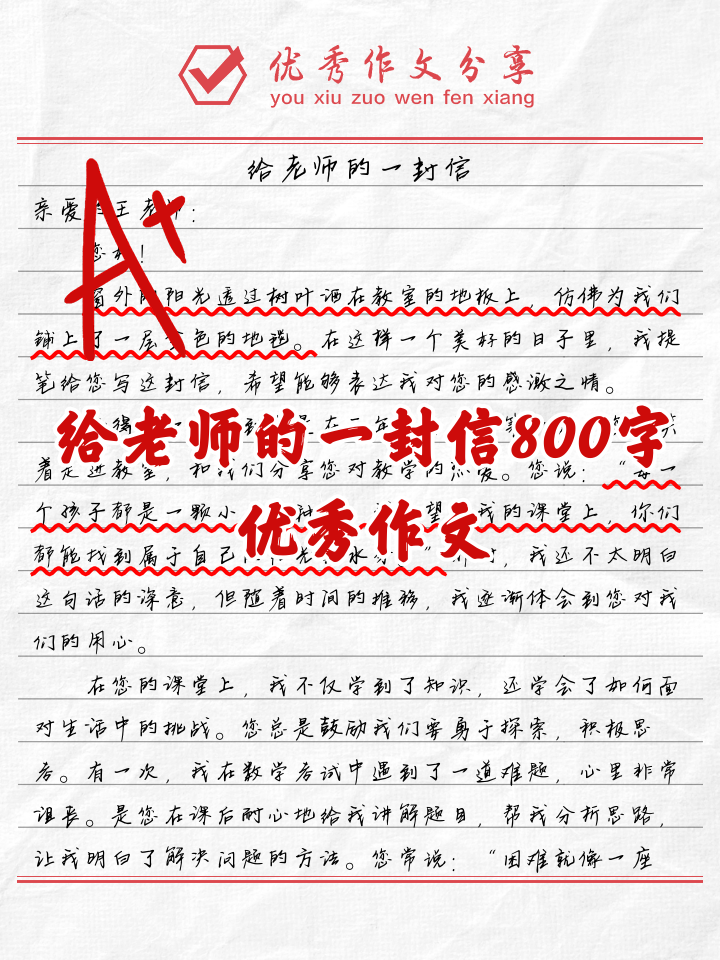 优秀作文分享
you xiu zuo wen fen xiang
给老师的一封信
亲爱的王老师：
您好！
窗外的阳光透过树叶洒在教室的地板上，仿佛为我们
铺上了一层金色的地毯。在这样一个美好的日子里，我提
笔给您写这封信，希望能够表达我对您的感激之情。
给老师的一封信800字
着走进教室，和我们分享您对教学的热爱。您说：“每一
个孩子都是一颗小 望 我的课堂上，你们
优秀作文
都能找到属于自己 ”那时，我还不太明白
这句话的深意，但随着时间的推移，我逐渐体会到您对我
们的用心。
在您的课堂上，我不仅学到了知识，还学会了如何面
对生活中的挑战。您总是鼓励我们要勇于探索，积极思
考。有一次，我在数学考试中遇到了一道难题，心里非常
沮丧。是您在课后耐心地给我讲解题目，帮我分析思路，
让我明白了解决问题的方法。您常说：“困难就像一座
A+